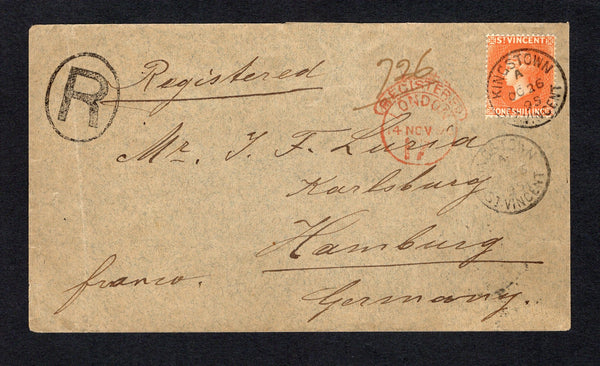 R
Registered
726
ST VINCENT
ONE SHILLING
KINGSTOWN
A
OC 26
95
ST. VINCENT
REGISTERED
LONDON
14 NOV
Mr. J. F. Luria
ST. VINCENT
Karlsburg
Hamburg
franco.
Germany.